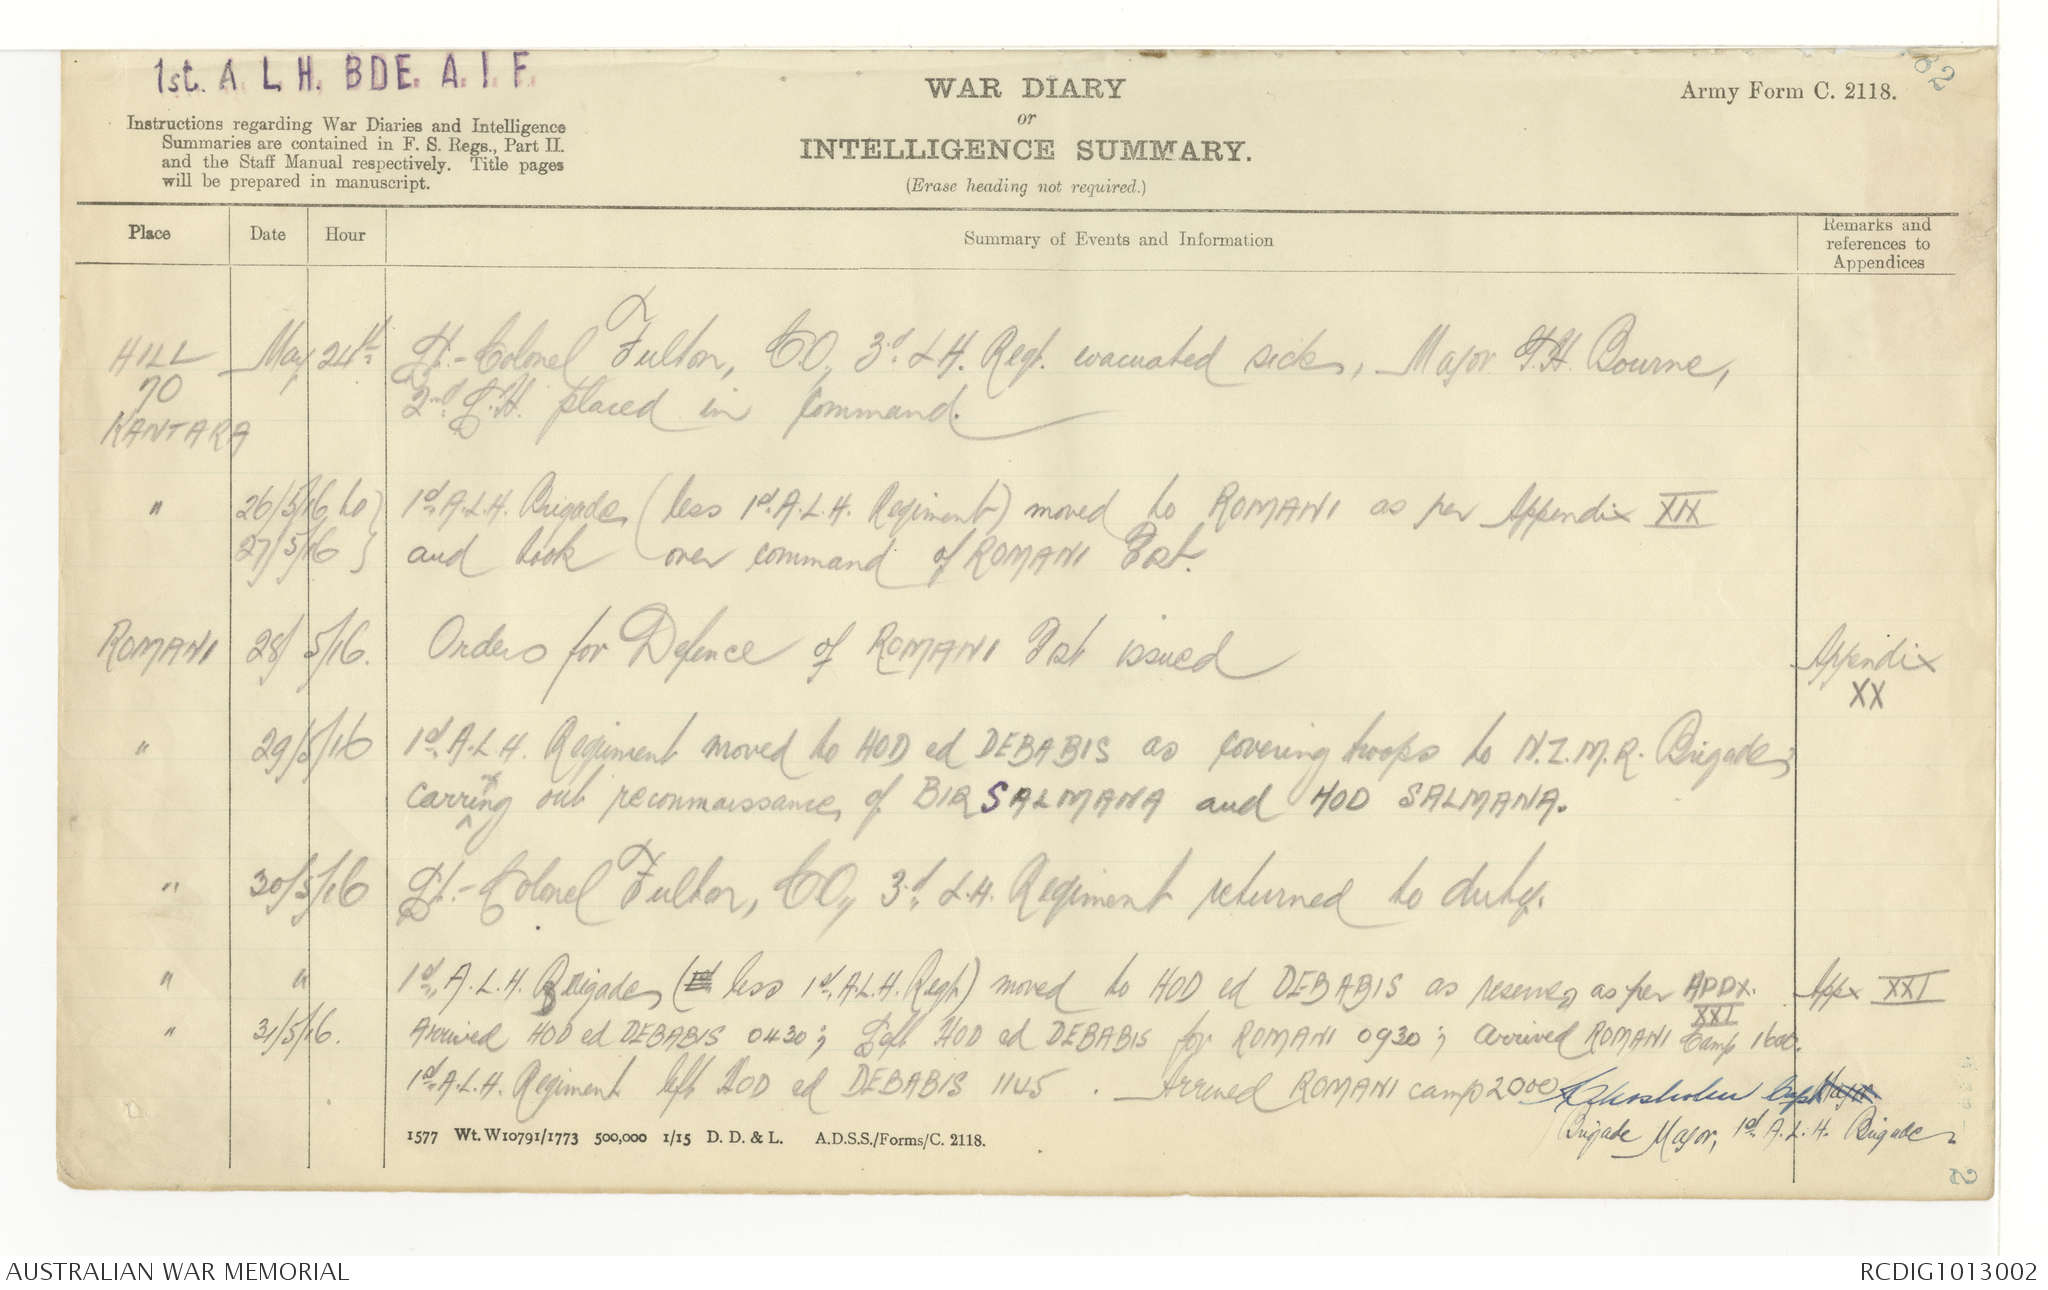 1st. A. L. H. BDE. A. I. F.
WAR DIARY
or
INTELLIGENCE SUMMARY.
(Erase heading not required.)
Army Form C. 2118.
82
Instructions regarding War Diaries and Intelligence
Summaries are contained in F. S. Regs., Part II.
and the Staff Manual respectively. Title pages
will be prepared in manuscript.
Place Date Hour Summary of Events and Information Remarks and references to Appendices
HILL May 24th Lt.-Colonel Fulton, C.O, 3rd L.H. Regt. evacuated sick, Major G.H. Bourne,
70 2nd L.H. placed in command.
KANTARA
" 26/5/16 to } 1st A.L.H. Brigade, (less 1st A.L.H. Regiment) moved to ROMANI as per Appendix XIX
27/5/16 } and took over command of ROMANI Post.
ROMANI 28/5/16. Orders for Defence of ROMANI Post issued Appendix
XX
" 29/5/16 1st A.L.H. Regiment moved to HOD ed DEBABIS as covering troops to N.Z.M.R. Brigade,
carrying out reconnaissance, of BIR SALMANA and HOD SALMANA.
" 30/5/16 Lt.-Colonel Fulton, C.O., 3rd L.H. Regiment returned to duty.
" " 1st A.L.H. Brigade, (less 1st A.L.H. Regt) moved to HOD ed DEBABIS as reserve, as per APPX. Appx XXI
XXI
" 31/5/16. Arrived HOD ed DEBABIS 0430; Left HOD ed DEBABIS for ROMANI 0930; Arrived ROMANI Camp 1600.
1st A.L.H. Regiment left HOD ed DEBABIS 1145. Arrived ROMANI camp 2000
Capt
Brigade Major, 1st A.L.H. Brigade
1577 Wt. W10791/1773 500,000 1/15 D. D. & L. A.D.S.S./Forms/C. 2118.
AUSTRALIAN WAR MEMORIAL
RCDIG1013002